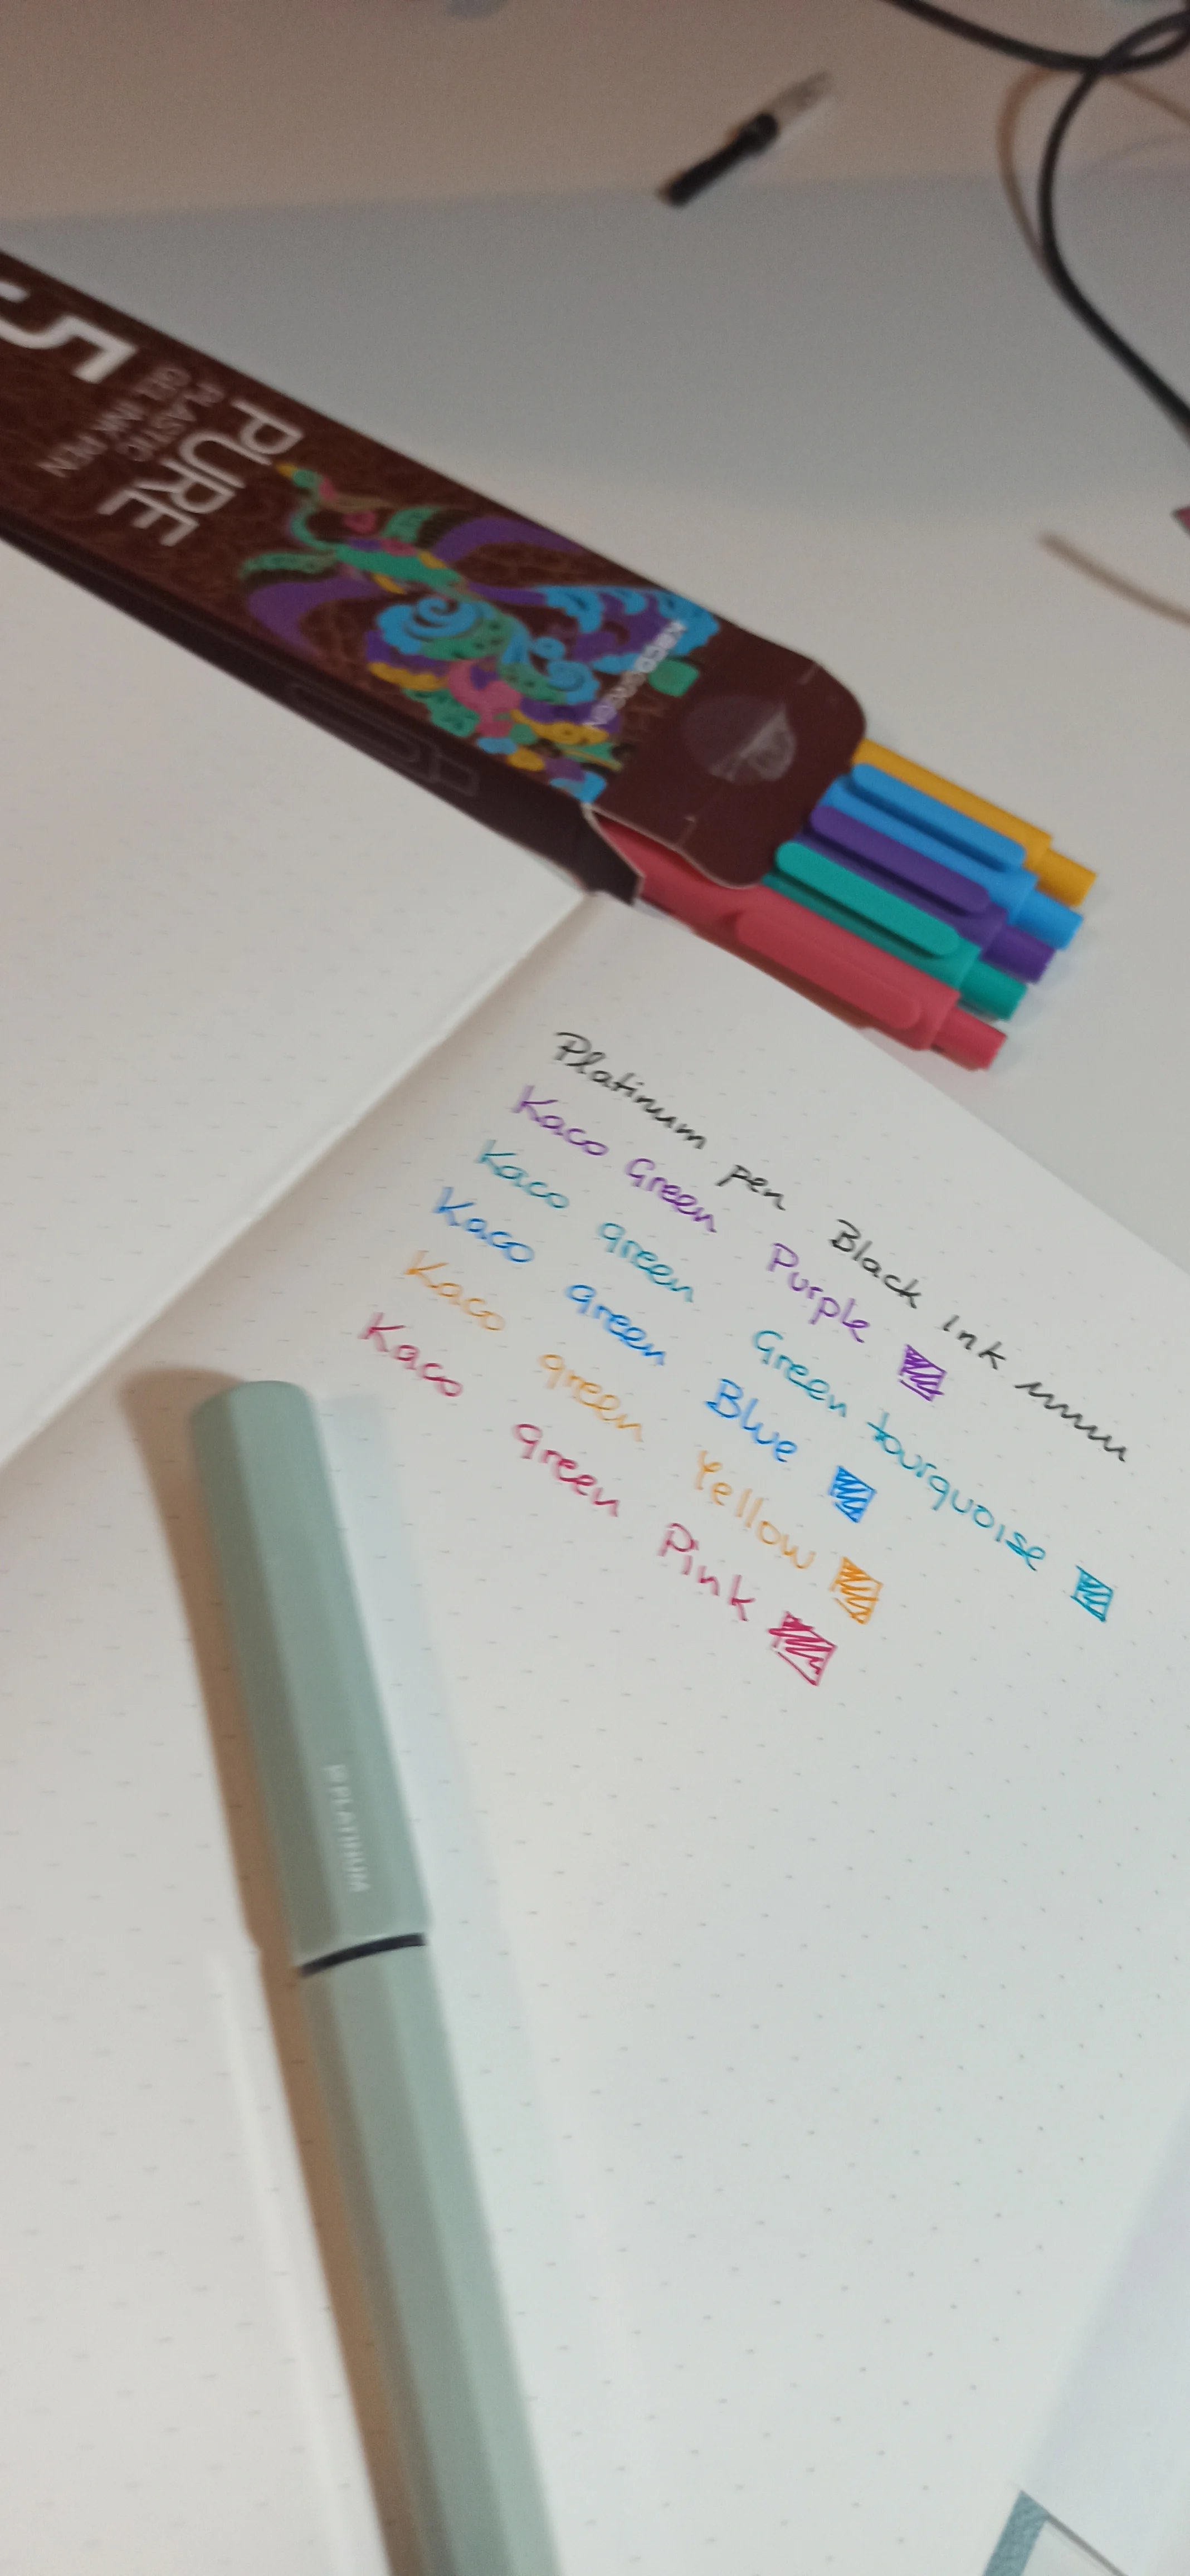 5
PURE
PLASTIC
GEL INK PEN
KACOGREEN
Platinum pen Black ink
Kaco Green Purple
Kaco green Green tourquoise
Kaco green Blue
Kaco green Yellow
Kaco green Pink
PLATINUM